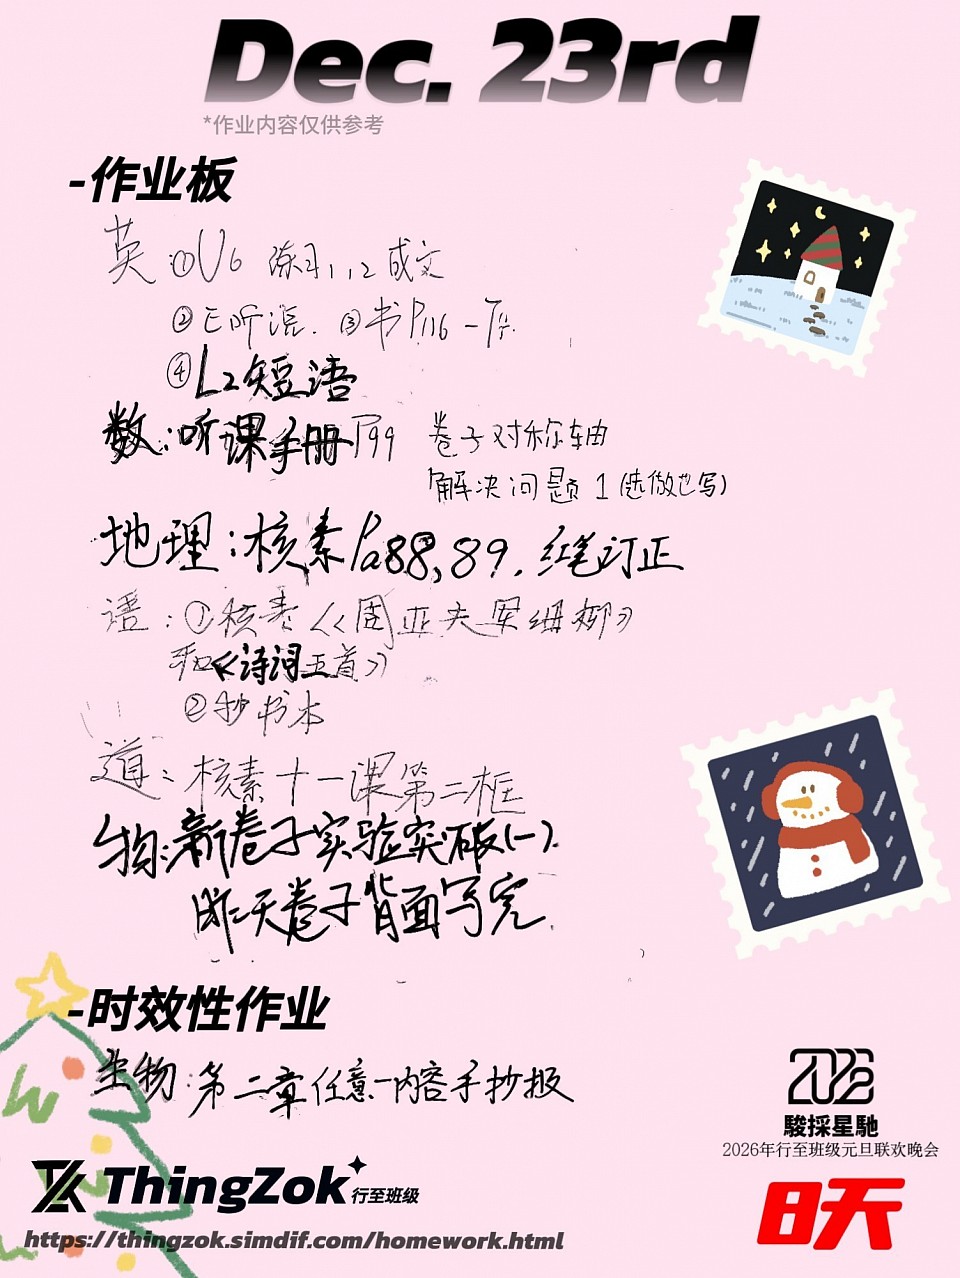 Dec. 23rd
*作业内容仅供参考
-作业板
英:①U6 练习1,2 成文
②E听说. ③书P116-下.
④L2短语
数:听课手册P99 卷子对称轴
解决问题1(选做也写)
地理:核素P88,89. 红笔订正
语:①核素《周亚夫军细柳》
和《诗词五首》
②抄书本
道:核素十一课第二框
物:新卷子实验突破(一).
昨天卷子背面写完
-时效性作业
生物:第二章任意一内容手抄报
2026
駿採星馳
2026年行至班级元旦联欢晚会
ThingZok 行至班级
8天
https://thingzok.simdif.com/homework.html